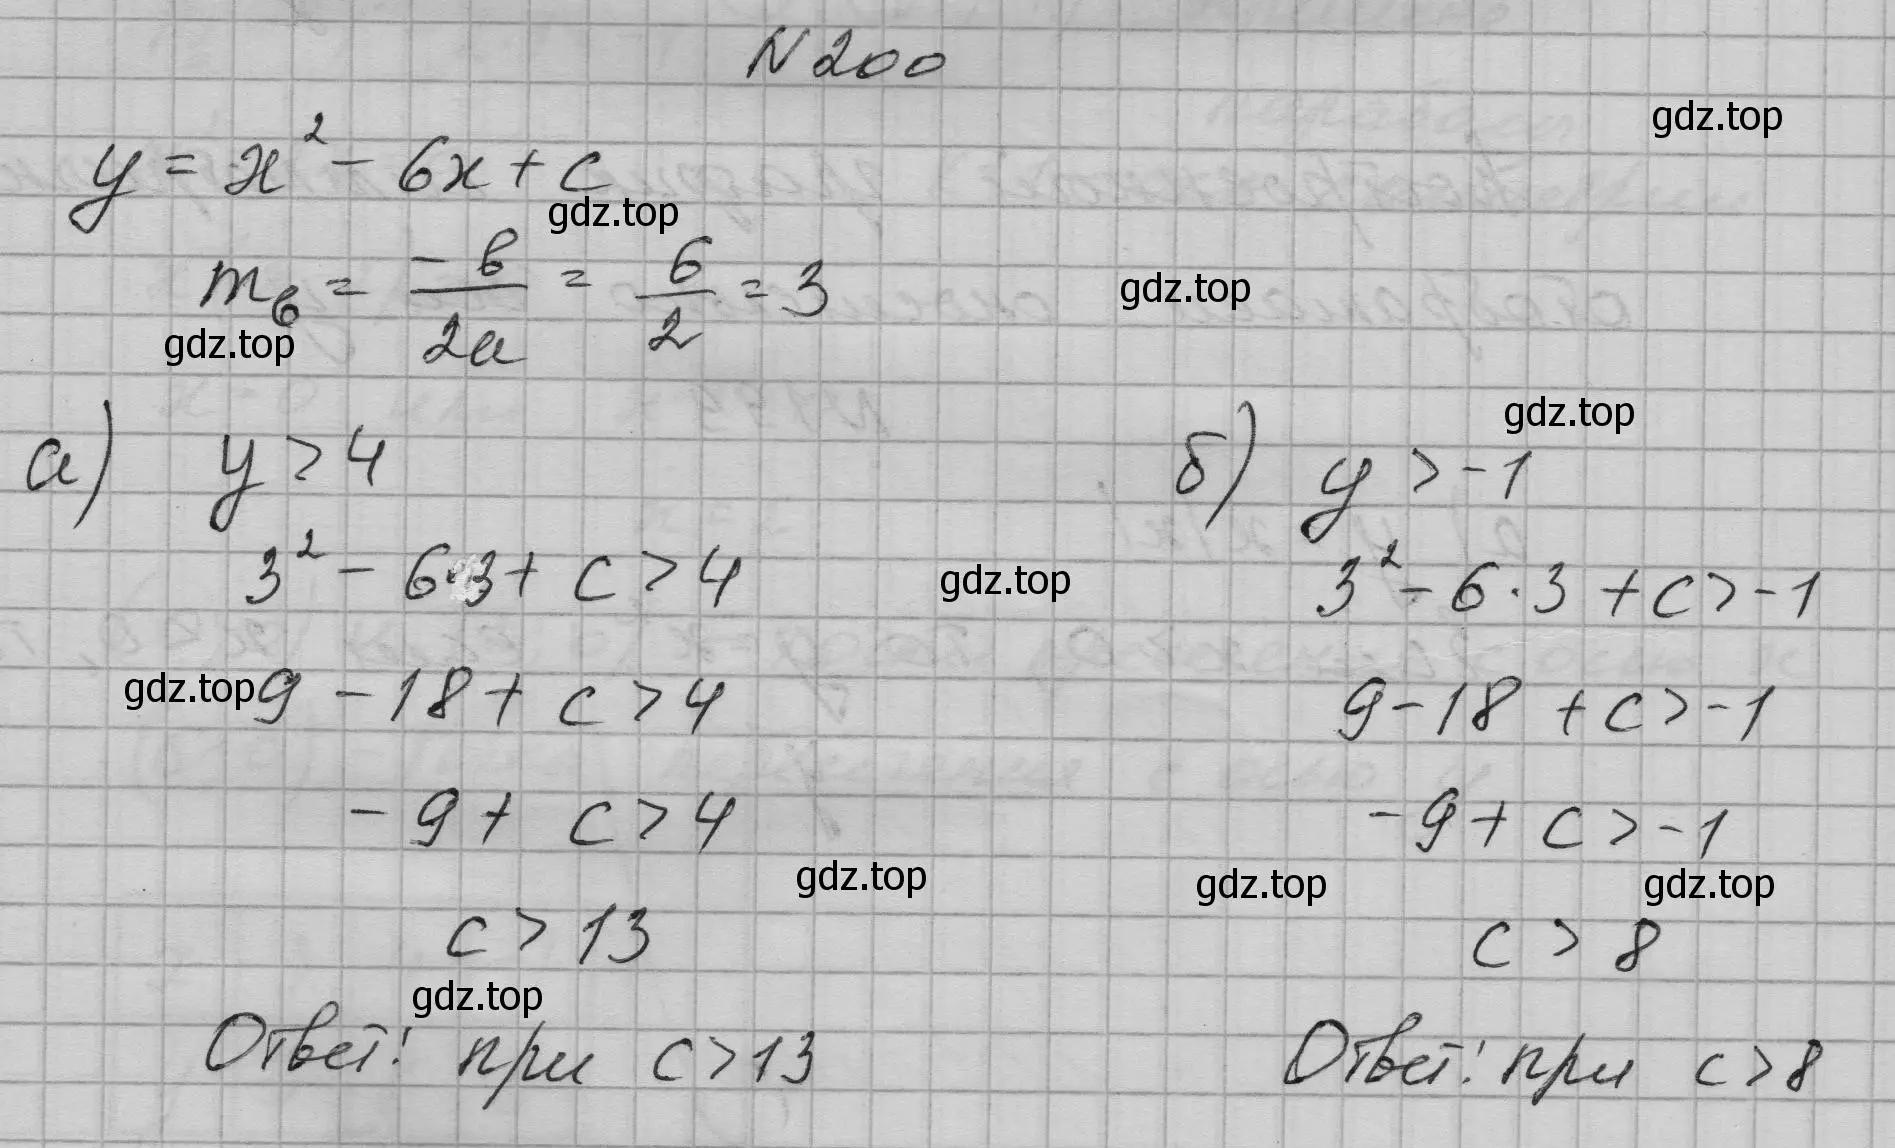 N 200
gdz.top
y = x² - 6x + c
gdz.top
m₆ = -в/2a = 6/2 = 3
gdz.top
gdz.top
а) y > 4
3² - 6·3 + c > 4
gdz.top
gdz.top
9 - 18 + c > 4
-9 + c > 4
gdz.top
c > 13
gdz.top
Ответ: при c > 13
gdz.top
б) y > -1
3² - 6·3 + c > -1
9 - 18 + c > -1
-9 + c > -1
gdz.top
gdz.top
c > 8
Ответ: при c > 8